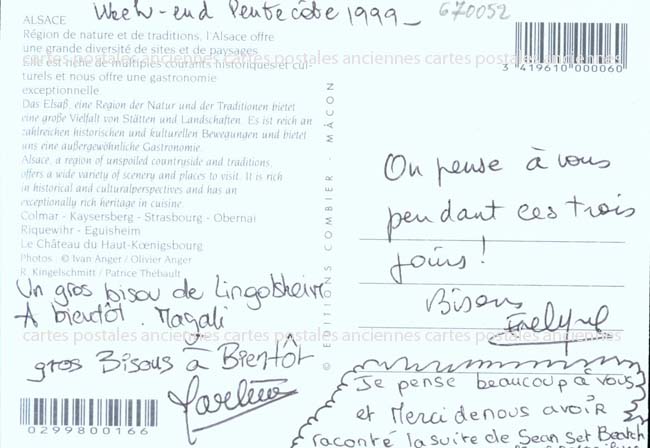 Week-end Pentecôte 1999_
670052
ALSACE
Région de nature et de traditions, l'Alsace offre
une grande diversité de sites et de paysages.
Elle est riche de multiples courants historiques et cul-
turels et nous offre une gastronomie
exceptionnelle.
Das Elsaß, eine Region der Natur und der Traditionen bietet
eine große Vielfalt von Stätten und Landschaften. Es ist reich an
zahlreichen historischen und kulturellen Bewegungen und bietet
uns eine außergewöhnliche Gastronomie.
Alsace, a region of unspoiled countryside and traditions,
offers a wide variety of scenery and places to visit. It is rich
in historical and culturalperspectives and has an
exceptionally rich heritage in cuisine.
Colmar - Kaysersberg - Strasbourg - Obernai
Riquewihr - Eguisheim
Le Château du Haut-Kœnigsbourg
Photos : © Ivan Anger / Olivier Anger
R. Kingelschmitt / Patrice Thébault
Un gros bisou de Lingolsheim
A bientôt. Magali
gros Bisous à Bientôt
0299800166
© EDITIONS COMBIER - MÂCON
3 419610 000060
On pense à vous
pendant ces trois
jours !
Bisous
Evelyne
Je pense beaucoup à vous
et Merci de nous avoir
raconté la suite de Sean, Set Beatch
cartes postales anciennes cartes postales anciennes cartes postales anciennes
cartes postales anciennes cartes postales anciennes cartes postales anciennes